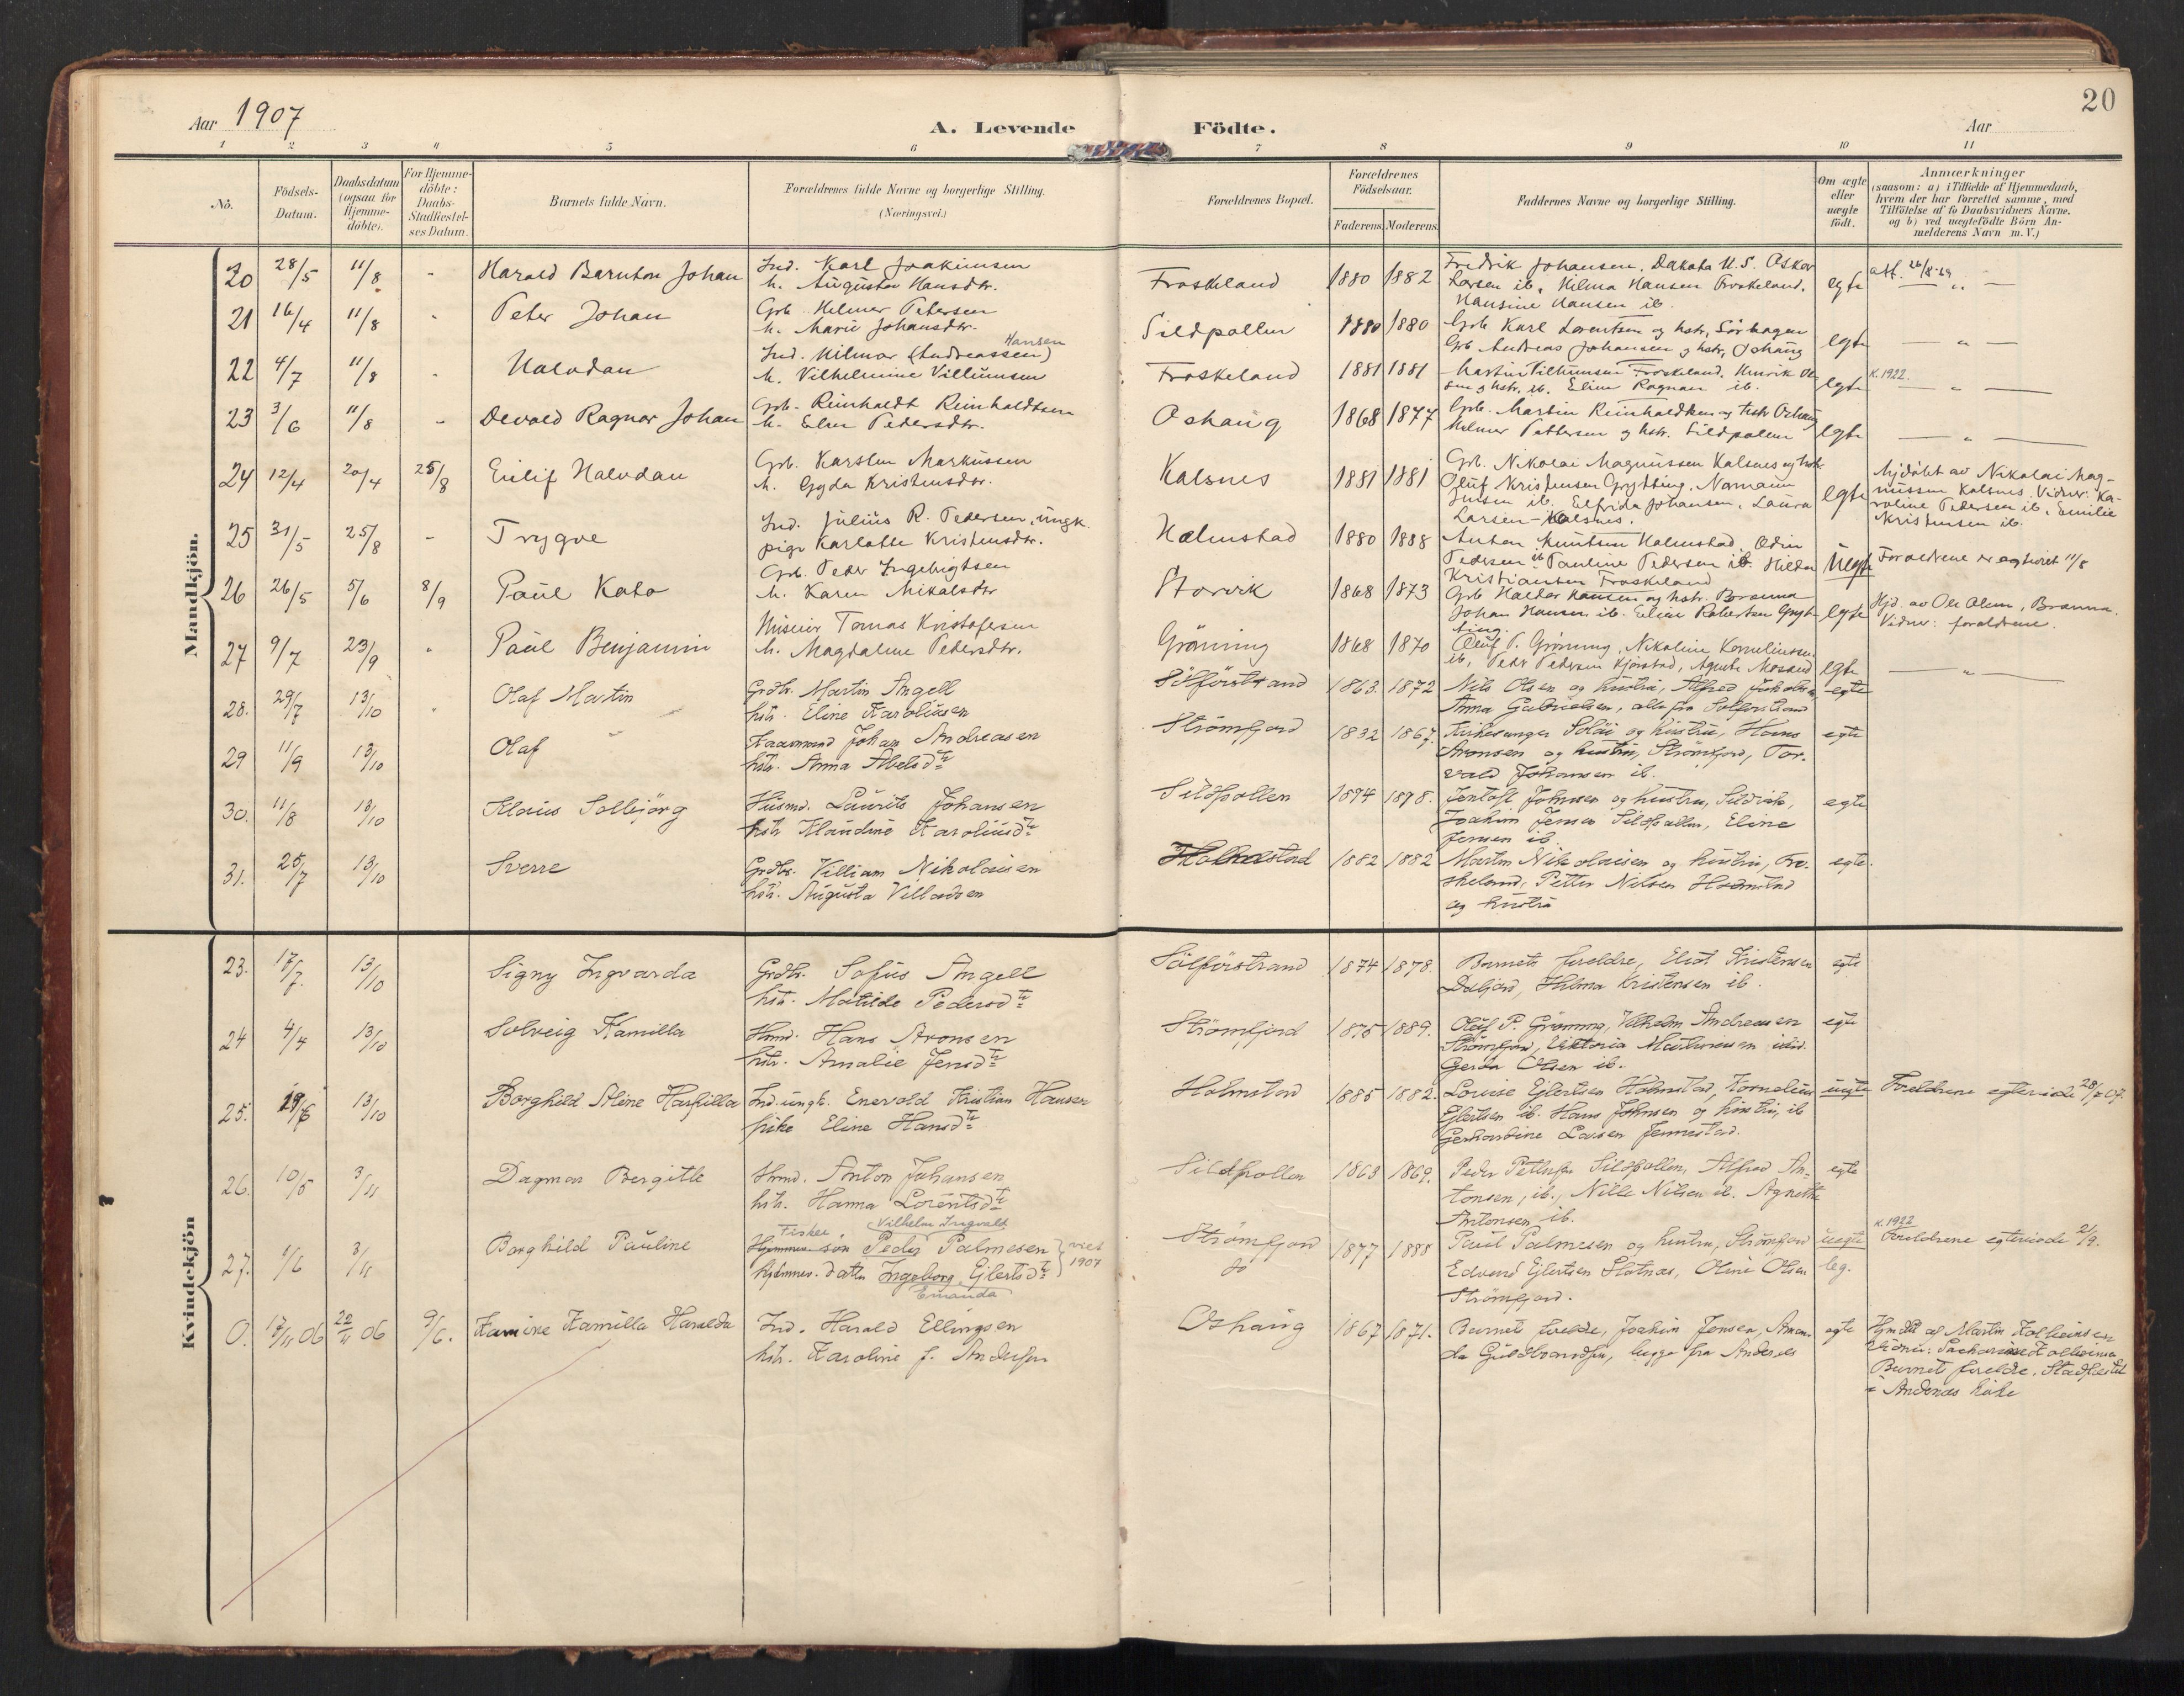 Aar 1907
A. Levende Födte.
Aar
20
1 2 3 4 5 6 7 8 9 10 11
No.
Födsels-Datum.
Daabsdatum (ogsaa for Hjemme-döbte).
For Hjemme-döbte: Daabs-Stadfæstel-ses Datum.
Barnets fulde Navn.
Forældrenes fulde Navne og borgerlige Stilling.
(Næringsvei.)
Forældrenes Bopæl.
Forældrenes Födselsaar.
Faderens. Moderens.
Faddernes Navne og borgerlige Stilling.
Om ægte eller uægte födt.
Anmærkninger
(saasom: a) i Tilfælde af Hjemmedaab,
hvem der har forrettet samme, med
Tilföielse af to Daabsvidners Navne.
og b) ved uægtefödte Börn An-
melderens Navn m. V.)
Mandkjön.
20 28/5 11/8 - Harald Johan
Ind. Karl Joakimsen
h. Augusta Hansdtr.
Froskeland 1880 1882
Fredrik Johansen, Dakota U.S. Oskar
Larsen ib, Hilma Hansen Froskeland,
Hansine Hansen ib.
egte
att. 26/8-29 - " -
21 16/4 11/8 - Peter Johan
Grb. Helmer Petersen
h. Marie Johansdtr.
Sildpollen 1880 1880
Grb Karl Lorentsen og hstr, Sörhagen
Grb Andreas Johansen og hstr, Oshaug
egte - " -
22 4/7 11/8 - Halvdan
Hansen
Ind. Hilmar (Andreassen)
h. Vilhelmine Villumsen
Froskeland 1881 1881
Martin Villumsen Froskeland, Henrik Ol-
sen og hstr. ib. Eline Ragnan ib.
egte
K. 1922. - " -
23 3/6 11/8 - Devold Ragnar Johan
Grb. Reinholdt Reinholdtsen
h. Elen Pedersdtr.
Oshaug 1868 1877
Grb. Martin Reinholdtsen og hstr Oshaug
Helmer Pettersen og hstr. Sildpollen
egte - " -
24 12/4 20/4 25/8 Eilif Halvdan
Grb. Karsten Markussen
h. Gyda Kristensdtr.
Kalsnes 1881 1881
Grb. Nikolai Magnussen Kalsnes og hstr
Oluf Kristensen Grytting, Normann
Jensen ib. Elfrida Johansen, Laura
Larsen - Kalsnes.
egte
Hjdöbt av Nikolai Mag-
nussen Kalsnes. Vidner: Ka-
roline Pedersen ib, Emilie
Kristensen ib.
25 31/5 25/8 - Trygve
Ind. Julius R. Pedersen, ungk.
pige Karlotte Kristensdtr.
Holmstad 1880 1888
Anton Knutsen Holmstad, Odin
Pedersen ib Pauline Pedersen ib. Hilda
Kristiansen Froskeland
Uegte
Forældrene er egteviet 11/8
26 26/5 5/6 8/9 Paul Kato
Grb. Peder Ingebrigtsen
h. Karen Mikalsdtr
Storvik 1868 1873
Grb Haldor Hansen og hstr. Brænna
Johan Hansen ib. Eline Robertsen Gryt-
ting.
egte
Hjd. av Ole Olsen, Brænna.
Vidner: forældrene.
27 9/7 23/9 " Paul Benjamin
Tomas Kristofersen
h. Magdalene Pedersdtr.
Grönning 1868 1870
Oluf P. Grönning, Nikoline Korneliussen
ib, Peder Pedersen Kjörstad, Agnete Mossend
egte - " -
28. 29/7 13/10 " Olaf Martin
Grdbr. Martin Angell
hstr. Eline Karoliusen
Sölförstrand 1863. 1872
Nils Olsen og hustru, Alfred Jakobsen
Anna Gabrielsen, alle fra Solforstrand
egte
29 11/9 13/10 Olaf
Kaarmand Johan Andreasen
hstr. Anna Abelsdtr
Strömfjord 1832 1867.
Kirkesanger Solöi og hustru, Hans
Aronsen og hustru, Strömfjord, Tor-
vald Johansen ib.
egte
30. 11/8 13/10 Klaus Solbjörg
Husmd. Laurits Johansen
hstr Klaudine Karoliusdtr
Sildpollen 1874 1878.
Jentoft Johnsen og hustru, Sildvik,
Joakim Jensen Sildpollen, Eline
Jensen ib.
egte
31. 25/7 13/10 Sverre
Grdbr. Villiam Nikolaisen
hstr. Augusta Villadsen
Holmstad 1882 1882
Martin Nikolaisen og hustru, Fro-
skeland, Petter Nilsen Holmstad
og hustru
egte.
Kvindekjön
23. 17/7. 13/10 Signy Ingvarda
Grdbr. Sofus Angell
hstr. Matilde Pedersdtr
Sölförstrand 1874 1878.
Barnets foreldre, Eliot Kristensen
Dalfjord, Hilma Kristensen ib.
egte
24 4/4 13/10 Solveig Kamilla
Husmd. Hans Aronsen
hstr. Amalie Jensdtr
Strömfjord 1875 1889.
Oluf P. Grönning, Vilhelm Andreassen
Strömfjord, Viktoria Mathisen ibid.
Gerda Olsen ib.
egte
25. 19/6 13/10 Borghild Aline Harfilla
Ind. ungk. Enevold Kristian Hansen
pike Eline Hansdtr
Holmstad 1885 1882.
Lovise Ejlertsen Holmstad, Kornelius
Ejlertsen ib. Hans Johnsen og hustru, ib
Gerhardine Larsen Jennestad.
uegte
Foreldrene egteviede 28/7 07.
26. 10/5 3/11 Dagmar Bergitte
Husmd. Anton Johansen
hstr. Hanna Lorentsdtr
Sildpollen 1863 1869.
Peder Pettersen Sildpollen, Alfred An-
tonsen, ib., Nille Nilsen ib. Agnethe
Antonsen ib.
egte
27. 1/6 3/11 Borghild Pauline
Fisker Vilhelm Ingvald
Hjemmev. søn Peder Palmesen } viet 1907
hjemmev. datter Ingeborg Ejlertsdtr
Emanda
Strömfjord 1877 1888
do
Paul Palmesen og hustru, Strömfjord
Edvard Ejlertsen Slotnes, Oline Olsen
Strömfjord.
uegte
leg.
K. 1922
Foreldrene egteviede 2/9.
0. 17/11 06 22/11 06 9/6. Kamine Kamilla Haralda
Ind. Harald Ellingsen
hstr. Karoline f. Andersen
Oshaug 1867 1871.
Barnets foreldre, Joakim Jensen, Aman-
da Guldbrandsen, begge fra Andenes
egte
Hjmdbt af Martin Kolbeinsen
Barnets foreldre. Stadfæstet
i Andenes kirke